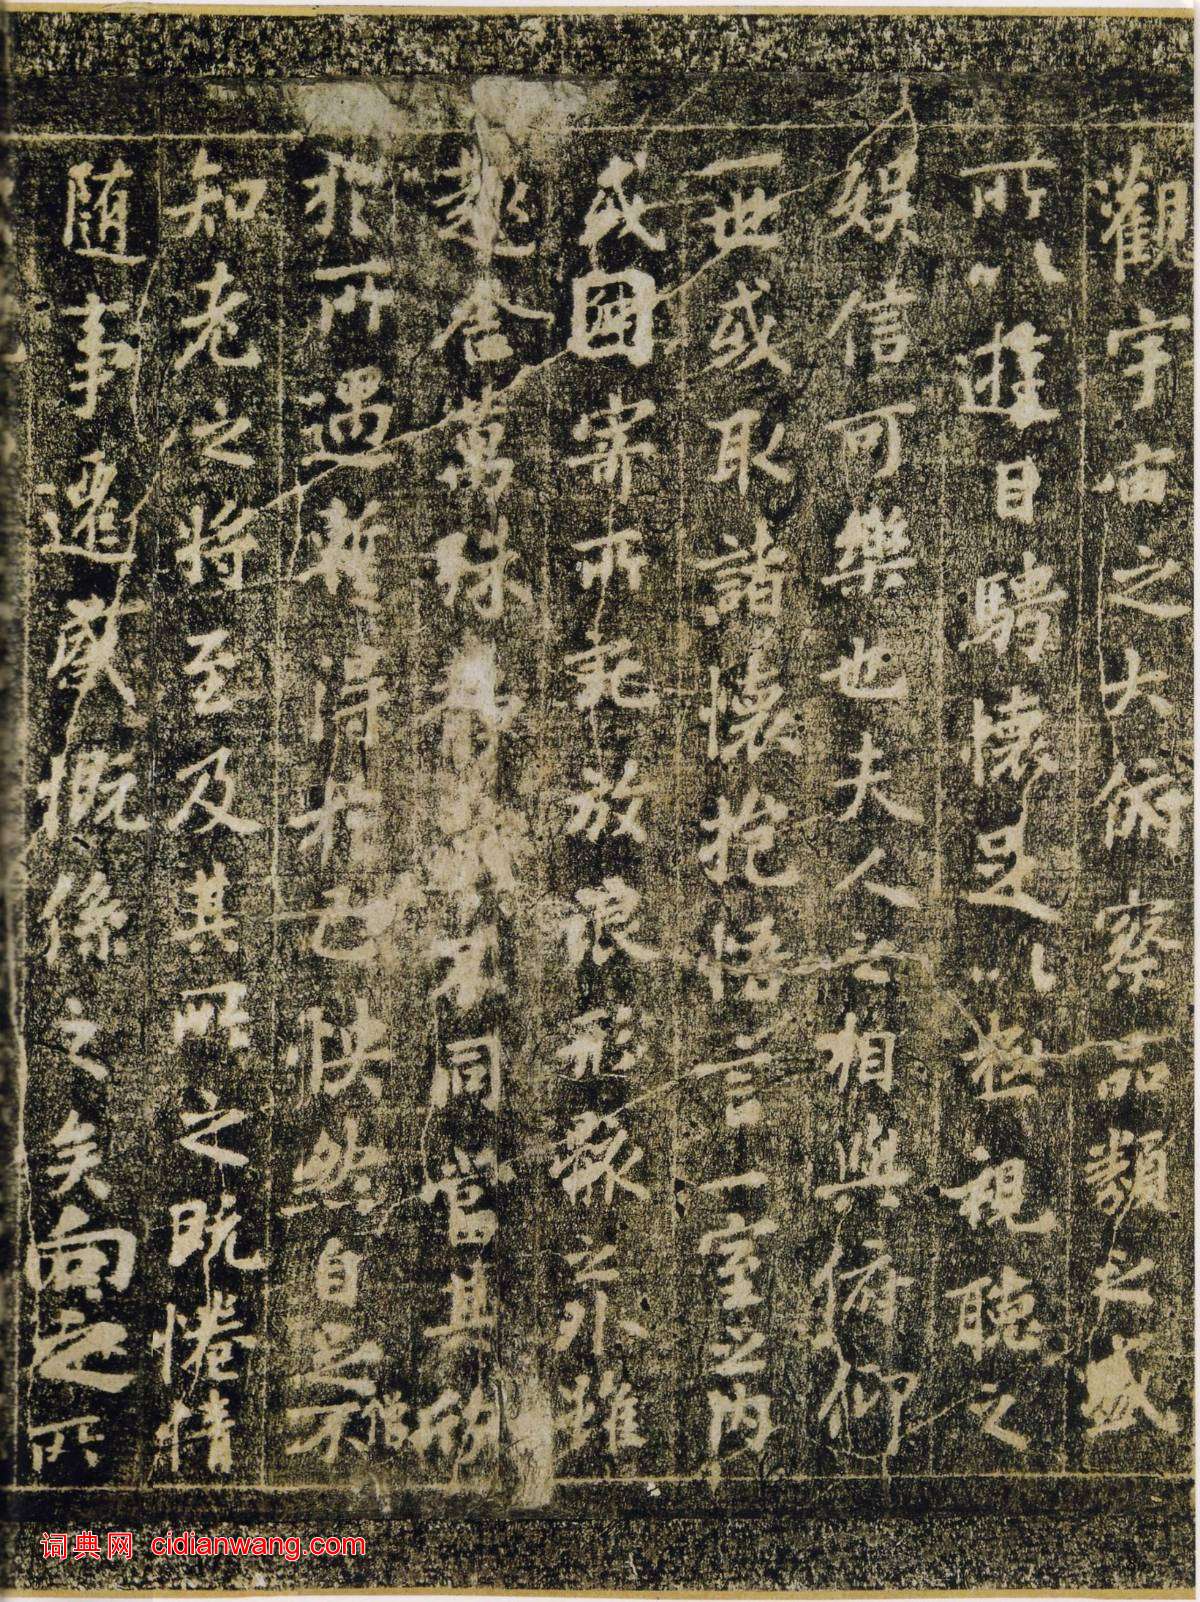 觀宇宙之大俯察品類之盛
所以遊目騁懷足以極視聽之
娛信可樂也夫人之相與俯仰
一世或取諸懷抱悟言一室之内
或因寄所託放浪形骸之外雖
趣舍萬殊静躁不同當其欣
於所遇暫得於己怏然自足不
知老之將至及其所之既惓情
隨事遷感慨係之矣向之所
詞典网 cidianwang.com